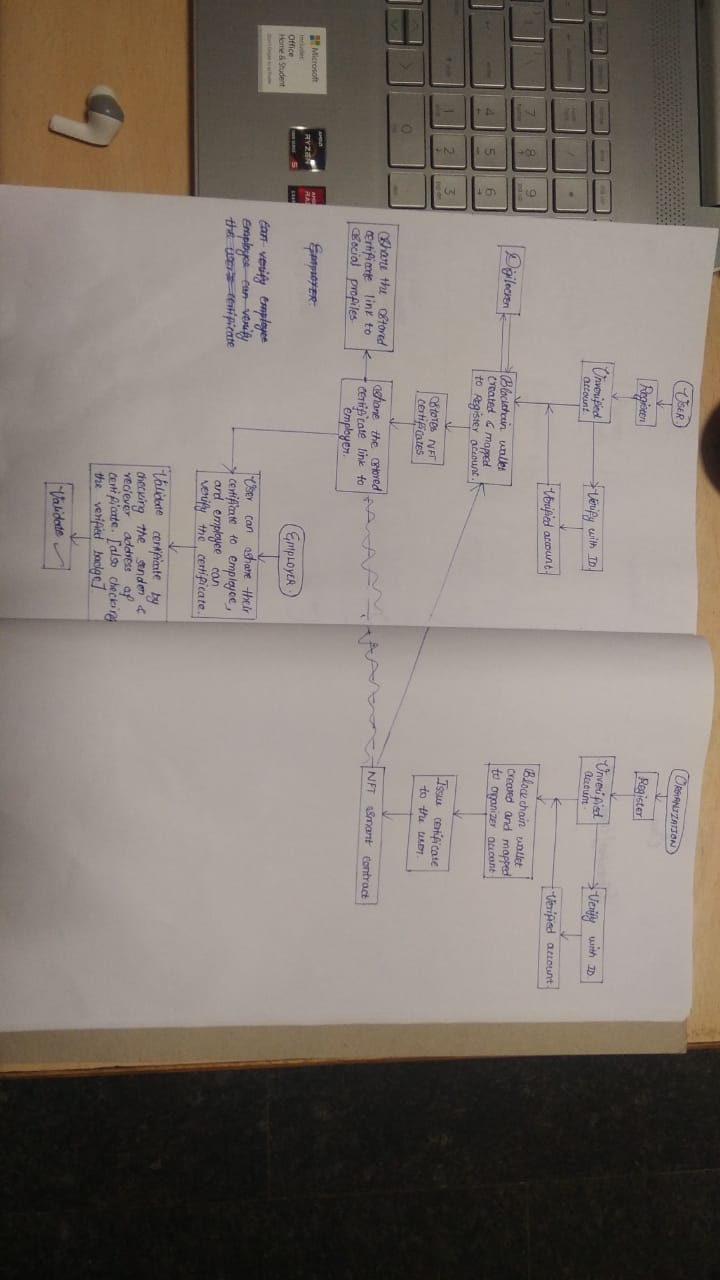 USER.
Register
Unverified
account
Verify with ID.
Verified account.
Digilocker
Blockchain wallet
created & mapped
to Register account.
Stores NFT
certificates.
Share the Stored
certificate link to
Social profiles.
Share the Stored
certificate link to
employer.
EMPLOYER.
Can verify employee
Employee can verify
the user's certificate
EMPLOYER.
User can share their
certificate to employee,
and employee can
verify the certificate.
Validate certificate by
checking the sender &
reciever address of
certificate. [also checking
the verified badge].
Validate ✓
ORGANIZATION
Register
Unverified
account.
Verify with ID.
Verified account.
Blockchain wallet
created and mapped
to organizer account
Issue certificate
to the user.
NFT Smart contract
7
8
9
4
5
6
1
2
3
0
Microsoft
Includes
Office
Home & Student
AMD
RYZEN
5
AMD
RA